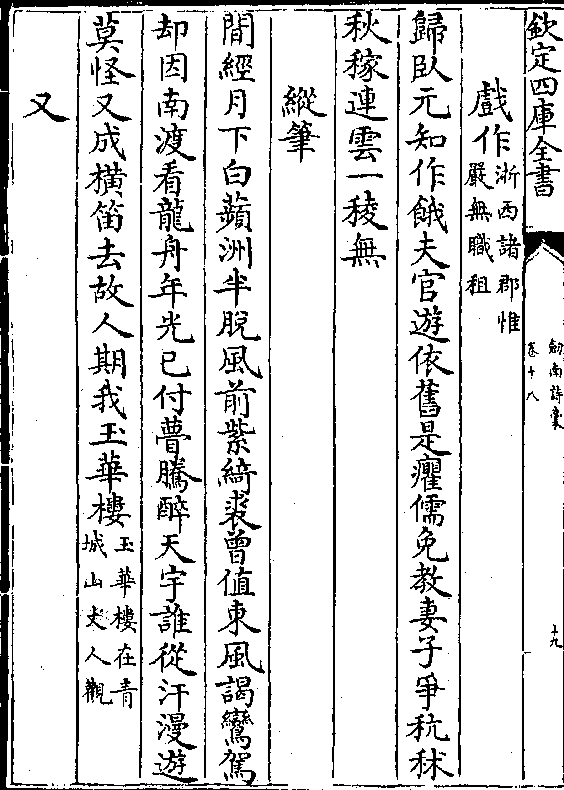 欽定四庫全書
劒南詩稾
卷十八
十九
戲作浙西諸郡惟
嚴無職租
歸臥元知作餓夫官遊依舊是癯儒免教妻子爭秔秫
秋稼連雲一稜無
縱筆
閒經月下白蘋洲半脫風前紫綺裘曾值東風謁鸞駕
却因南渡看龍舟年光已付瞢騰醉天宇誰從汗漫遊
莫怪又成橫笛去故人期我玉華樓玉華樓在青
城山丈人觀
又